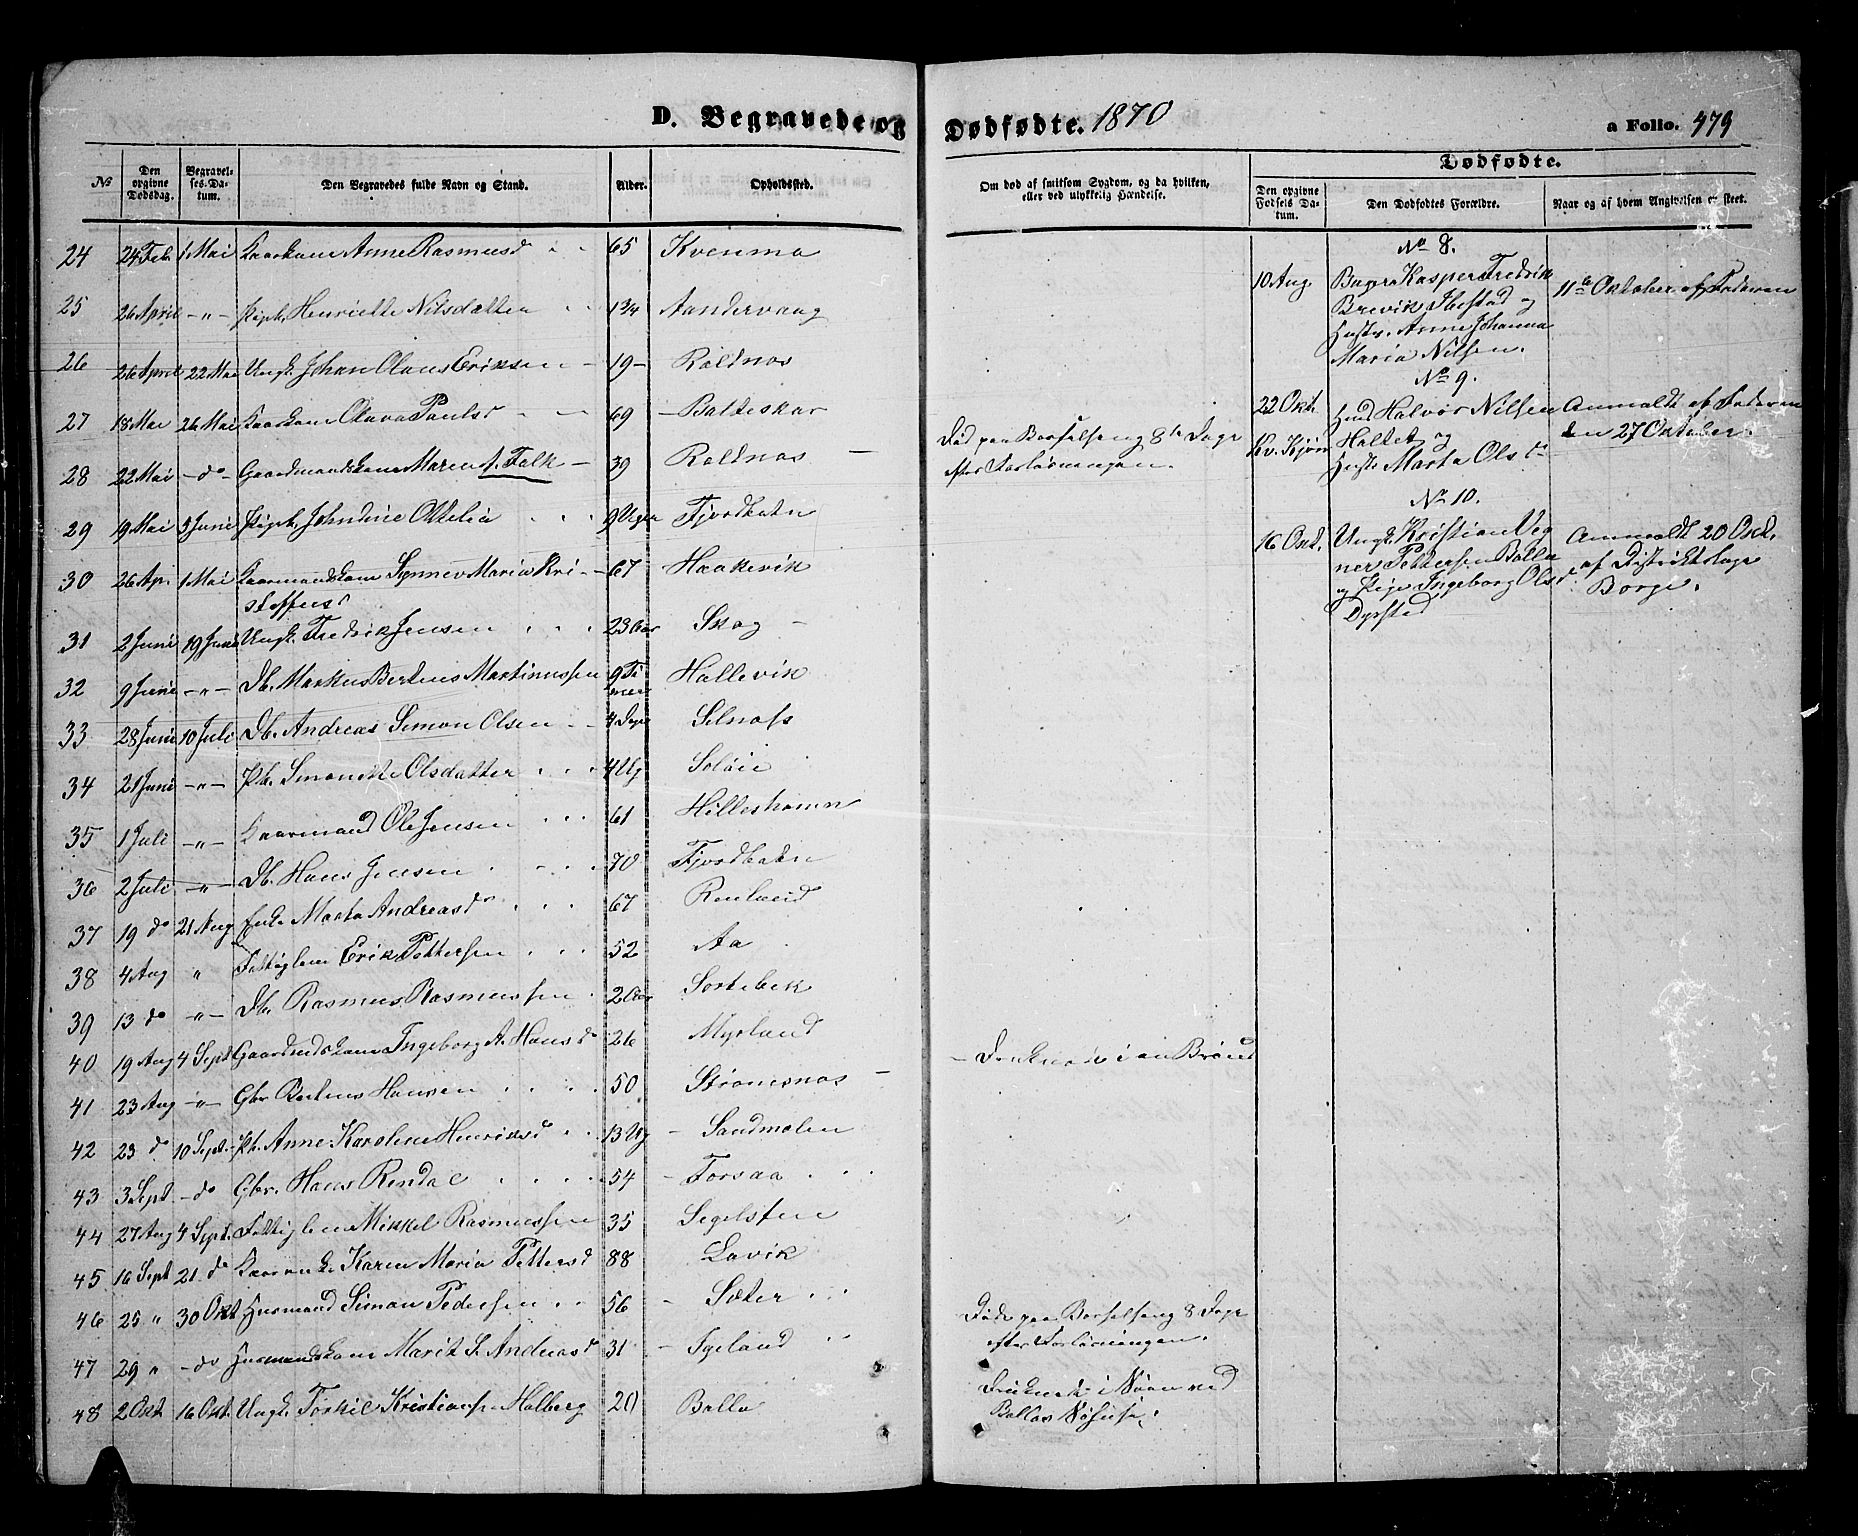 D. Begravede og Dødfødte. 1870
a Folio. 479
№
Den opgivne Dødsdag.
Begravelses-Datum.
Den Begravedes fulde Navn og Stand.
Alder.
Opholdssted.
Om død af smitsom Sygdom, og da hvilken, eller ved ulykkelig Hændelse.
Dødfødte.
Den opgivne Fødsels Datum.
Den Dødfødtes Forældre.
Naar og af hvem Angivelsen er skeet.
24 24 Feb. 1 Mai Kaarkone Anne Rasmusd 65 Kvenmo
25 26 April -"- Pigeb. Henriette Nilsdatter 1 3/4 Aandervaag
26 26 April 22 Mai Ungk. Johan Olaus Eriksen 19 - Roldnas
27 18 Mai 26 Mai Kaarkone Olava Paulsd 69 Balteskar
28 22 Mai - do Gaardmandskone Maren A. Falk 39 Roldnas Død paa Barselseng 8te Dage
efter Forløsningen.
29 19 Mai 5 Juni Pigeb. Johndine Ottelia 9 Uger Fjordbotn
30 26 Ap. 1 Mai Kaarmandskone Synnev Maria Kri-
stoffersd 67 Haakevik
31 2 Juni 19 Juni Ungk. Fredrik Jensen 23 Aar Skog
32 9 Juni -"- Db. Markus Bertens Martinussen 9 Ti
mer Hallevik
33 28 Juni 10 Juli Db. Andreas Simon Olsen 4 Dage Selnæs
34 21 Juni -"- Pb. Simonette Olsdatter 4 Ug Soløie
35 1 Juli -"- Kaarmand Ole Jensen 61 Hilleshamn
36 2 Juli -"- Db. Hans Jensen 70 Fjordbotn
37 19 do 21 Aug Enke Marta Andreasd 67 Renlund
38 4 Aug " Fattiglem Erik Pettersen 52 Aa
39 13 do -"- Db. Rasmus Rasmussen 2 Aar Sortebek
40 19 Aug 4 Sept Gaardmdskone Ingeborg A. Hansd 26 Myrland - Druknede i en Brønd
41 23 Aug -"- Gbr Bertens Hansen 50 Strømsnas
42 23 do 10 Sept. Pb. Anne Karoline Henriksd 13 Ug Sandmolen
43 3 Sept - do Gbr. Hans Rendal 54 Forsaa
44 27 Aug 4 Sept. Fattiglem Mikkel Rasmussen 35 Segelsten
45 16 Sept 21 do Kaarenke Karen Maria Pettersd 88 Lavik
46 25 " 30 Okt Husmand Simon Pedersen 56 Sæter
47 29 " - do Husmandskone Marit S. Andreasd 31 Tyeland Døde paa Barselseng 8 Dage
efter Forløsningen.
48 2 Okt 16 Okt. Ungk. Torkil Kristians. Halberg 20 Balla Druknede i Søen ved
Ballas
№ 8.
10 Aug. Kasper Fredrik
Brevik Ibestad og
Hustr. Anne Johanna
Maria Nilsen.
11te Oktober af Faderen
№ 9.
22 Okt. Husmd Halvor Nilsen
Kv. Kjøn Holtet og
Hustr. Marta Olsdr
Anmeldt af Faderen
den 27 Oktober.
№ 10.
16 Oct. Ungk. Kristian Veg
ner Pettersen Balla
og Pige Ingeborg Olsd
Dyrsted
Anmeldt 20 Oct.
af Distriktslæge
Borge.